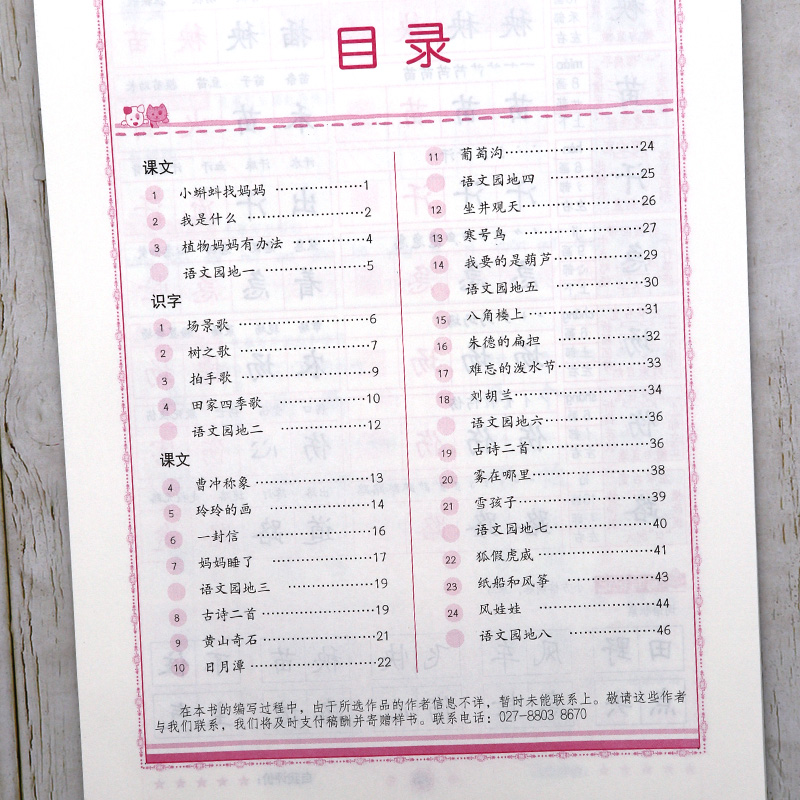 目录
课文
1 小蝌蚪找妈妈 ………………1
2 我是什么 ………………2
3 植物妈妈有办法 ………………4
语文园地一 ………………5
识字
1 场景歌 ………………6
2 树之歌 ………………7
3 拍手歌 ………………9
4 田家四季歌 ………………10
语文园地二 ………………12
课文
4 曹冲称象 ………………13
5 玲玲的画 ………………14
6 一封信 ………………16
7 妈妈睡了 ………………17
语文园地三 ………………19
8 古诗二首 ………………19
9 黄山奇石 ………………21
10 日月潭 ………………22
11 葡萄沟 ………………24
语文园地四 ………………25
12 坐井观天 ………………26
13 寒号鸟 ………………27
14 我要的是葫芦 ………………29
语文园地五 ………………30
15 八角楼上 ………………31
16 朱德的扁担 ………………32
17 难忘的泼水节 ………………33
18 刘胡兰 ………………34
语文园地六 ………………36
19 古诗二首 ………………36
20 雾在哪里 ………………38
21 雪孩子 ………………39
语文园地七 ………………40
22 狐假虎威 ………………41
23 纸船和风筝 ………………43
24 风娃娃 ………………44
语文园地八 ………………46
在本书的编写过程中，由于所选作品的作者信息不详，暂时未能联系上。敬请这些作者
与我们联系，我们将及时支付稿酬并寄赠样书。联系电话：027-8803 8670